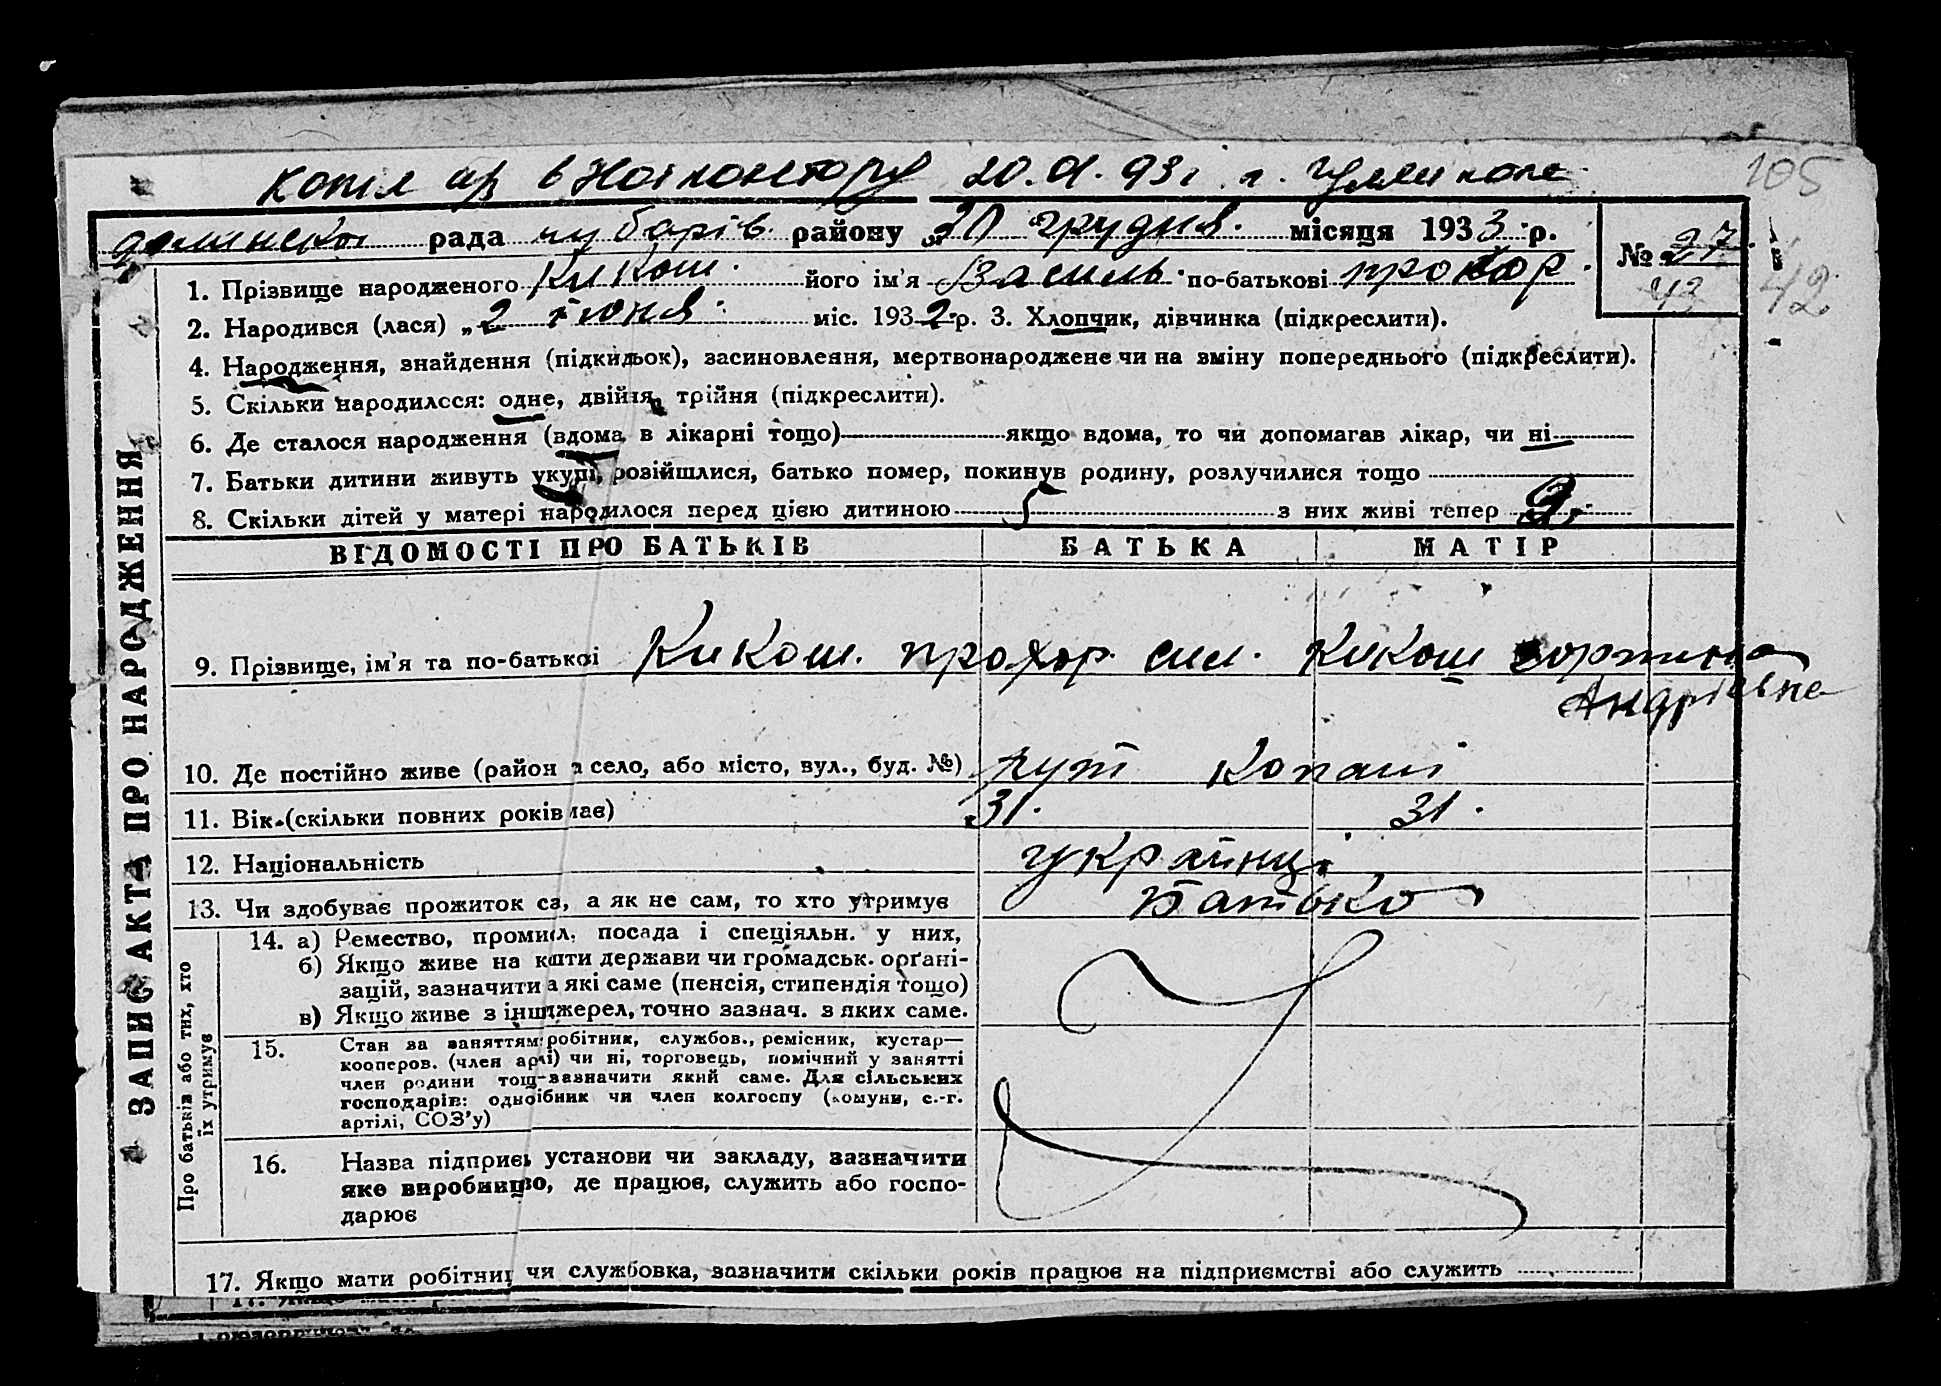 копія
20. 93 г. Гуляй поле
105
рада чубарів. району „20 грудня. місяця 1933 р.
№ 27
43
42
1. Прізвище народженого Кикош. його ім'я Василь по-батькові прохор.
2. Народився (лася) „2 іюня. міс. 1932 р. 3. Хлопчик, дівчинка (підкреслити).
4. Народження, знайдення (підкидьок), засиновлення, мертвонароджене чи на зміну попереднього (підкреслити).
5. Скільки народилося: одне, двійня, трійня (підкреслити).
6. Де сталося народження (вдома, в лікарні тощо) якщо вдома, то чи допомагав лікар, чи ні
7. Батьки дитини живуть укупі, розійшлися, батько помер, покинув родину, розлучилися тощо
8. Скільки дітей у матері народилося перед цією дитиною 5 з них живі тепер 2.
ВІДОМОСТІ ПРО БАТЬКІВ БАТЬКА МАТІР
9. Прізвище, ім'я та по-батькові Кикош. прохор. сил. Кикош
Андрієвна
10. Де постійно живе (район а село, або місто, вул., буд. №) хут Копані
11. Вік (скільки повних років має) 31. 31.
12. Національність українці
13. Чи здобуває прожиток са, а як не сам, то хто утримує Батько
14. а) Ремество, промисл, посада і спеціяльн. у них,
б) Якщо живе на кшти держави чи громадськ. орґані-
зацій, зазначити а які саме (пенсія, стипендія тощо)
в) Якщо живе з інш джерел, точно зазнач. з яких саме.
15. Стан за заняттям: робітник, службов., ремісник, кустар—
кооперов. (член арлі) чи ні, торговець, помічний у занятті
член родини тощ-зазначити який саме. Для сільських
господарів: одноібник чи член колгоспу (комуни, с.-г.
артілі, СОЗ'у)
16. Назва підприє, установи чи закладу, зазначити
яке виробництво, де працює, служить або госпо-
дарює
17. Якщо мати робітниц чи службовка, зазначити скільки років працює на підприємстві або служить
ЗАПИС АКТА ПРО НАРОДЖЕННЯ
Про батьків або тих, хто
їх утримує